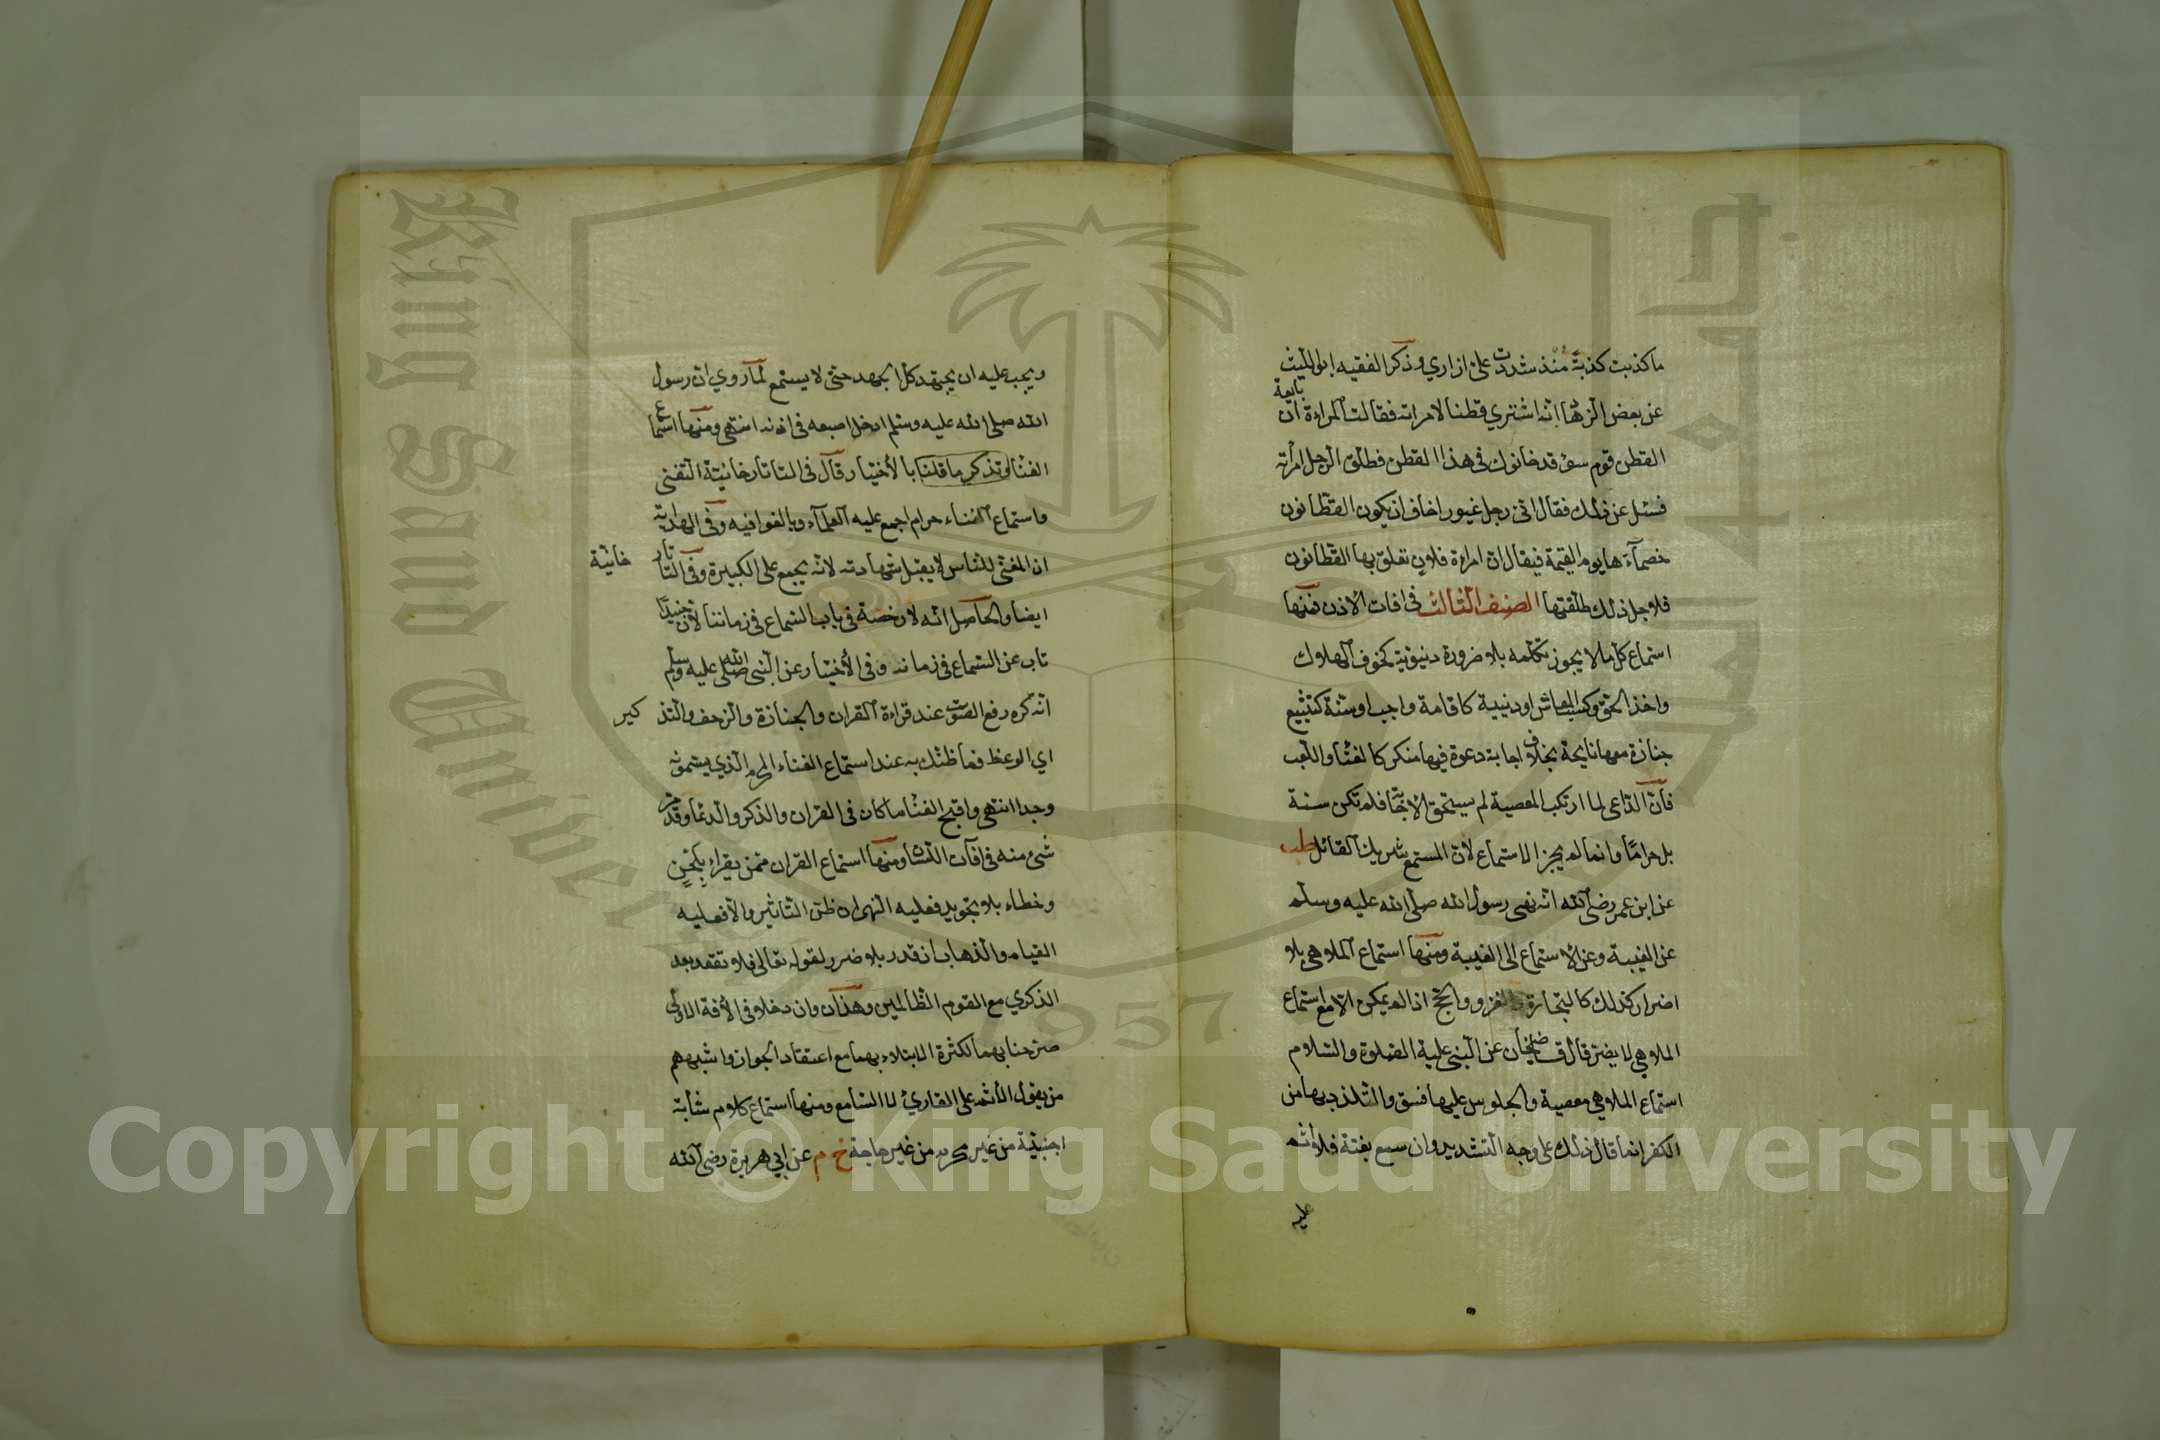 ما كذبت كذبة منذ شددت على ازاري وذكر الفقيه ابو الليث
عن بعض الزهاد انه اشتري قطنا لامراته فقالت المراءة ان بايعة
القطن قوم سوء قد خانوك في هذا القطن فطلق الرجل امرأته
فسئل عن ذلك فقال اني رجل غيور اخاف ان يكون القطانون
خصمآءها يوم القيمة فيقال ان امراءة فلان تعلق بها القطانون
فلاجل ذلك طلقتها الصنف الثالث في افات الاذن فمنها
استماع كل ما لا يجوز تكلمه بلا ضرورة دنيوية كخوف الهلاك
واخذ الحق وكسب المعاش او دينية كاقامة واجب او سنة كتشيع
جنازة معها نايحة بخلاف اجابة دعوة فيها منكر كالغنا واللعب
فان الداعي لما ارتكب المعصية لم يستحق الاجابة فلم تكن سنة
بل حراما وانما لم يجز الاستماع لان المستمع شريك القائل طب
عن ابن عمر رضي الله انه نهى رسول الله صلى الله عليه وسلم
عن الغيبة وعن الاستماع الى الغيبة ومنها استماع الملاهي بلا
اضرار كذلك كالتجارة والغزو والحج اذا لم يمكن الا مع استماع
الملاهي لا يضر قال قاضيخان عن النبي عليه الصلوة والسلام
استماع الملاهي معصية والجلوس عليها فسق والتلذذ بها من
الكفر انما قال ذلك على وجه التشديد وان سمع بغتة فلا اثم
عليه
ويجب عليه ان يجتهد كل الجهد حتى لا يستمع لما روي ان رسول
الله صلى الله عليه وسلم ادخل اصبعه في اذنه انتهى ومنها استماع
الغنا وتذكر ما قلنا بالأختيار قال في التاتارخانية التغني
واستماع الغناء حرام اجمع عليه العلمآء وبالغوا فيه وفي الهداية
ان المغني للناس لا يقبل شهادته لانه يجمع على الكبيرة وفي التاتار خانية
ايضا والحاصل انه لا رخصة في باب السماع في زماننا لان جنيدا
تاب عن السماع في زمانه وفي الأختيار عن النبي صلى الله عليه وسلم
انه كره رفع الصوت عند قراءة القران والجنازة والزحف والتذ كير
اي الوعظ فما ظنك به عند استماع الغناء المحرم الذي يسمونه
وجدا انتهى واقبح الغنا ما كان في القران والذكر والدعا وقد مر
شئ منه في افآت اللسٰا ومنها استماع القران ممن يقراء بلحن
وخطاء بلا تجويد فعليه النهي ان ظن التاثير والا فعليه
القيام والذهاب ان قدر بلا ضرر لقوله تعالى فلا تقعد بعد
الذكري مع القوم الظالمين وهذان وان دخلا في الأفة الاولى
صرحنا بهما لكثرة الابتلاء بهما مع اعتقاد الجواز واشبههم
من يقول الأثم على القارئ لا السامع ومنها استماع كلام شابة
اجنبية من غير محرم من غير حاجة خ م عن ابي هريرة رضي الله
King Saud University
1957
Copyright © King Saud University